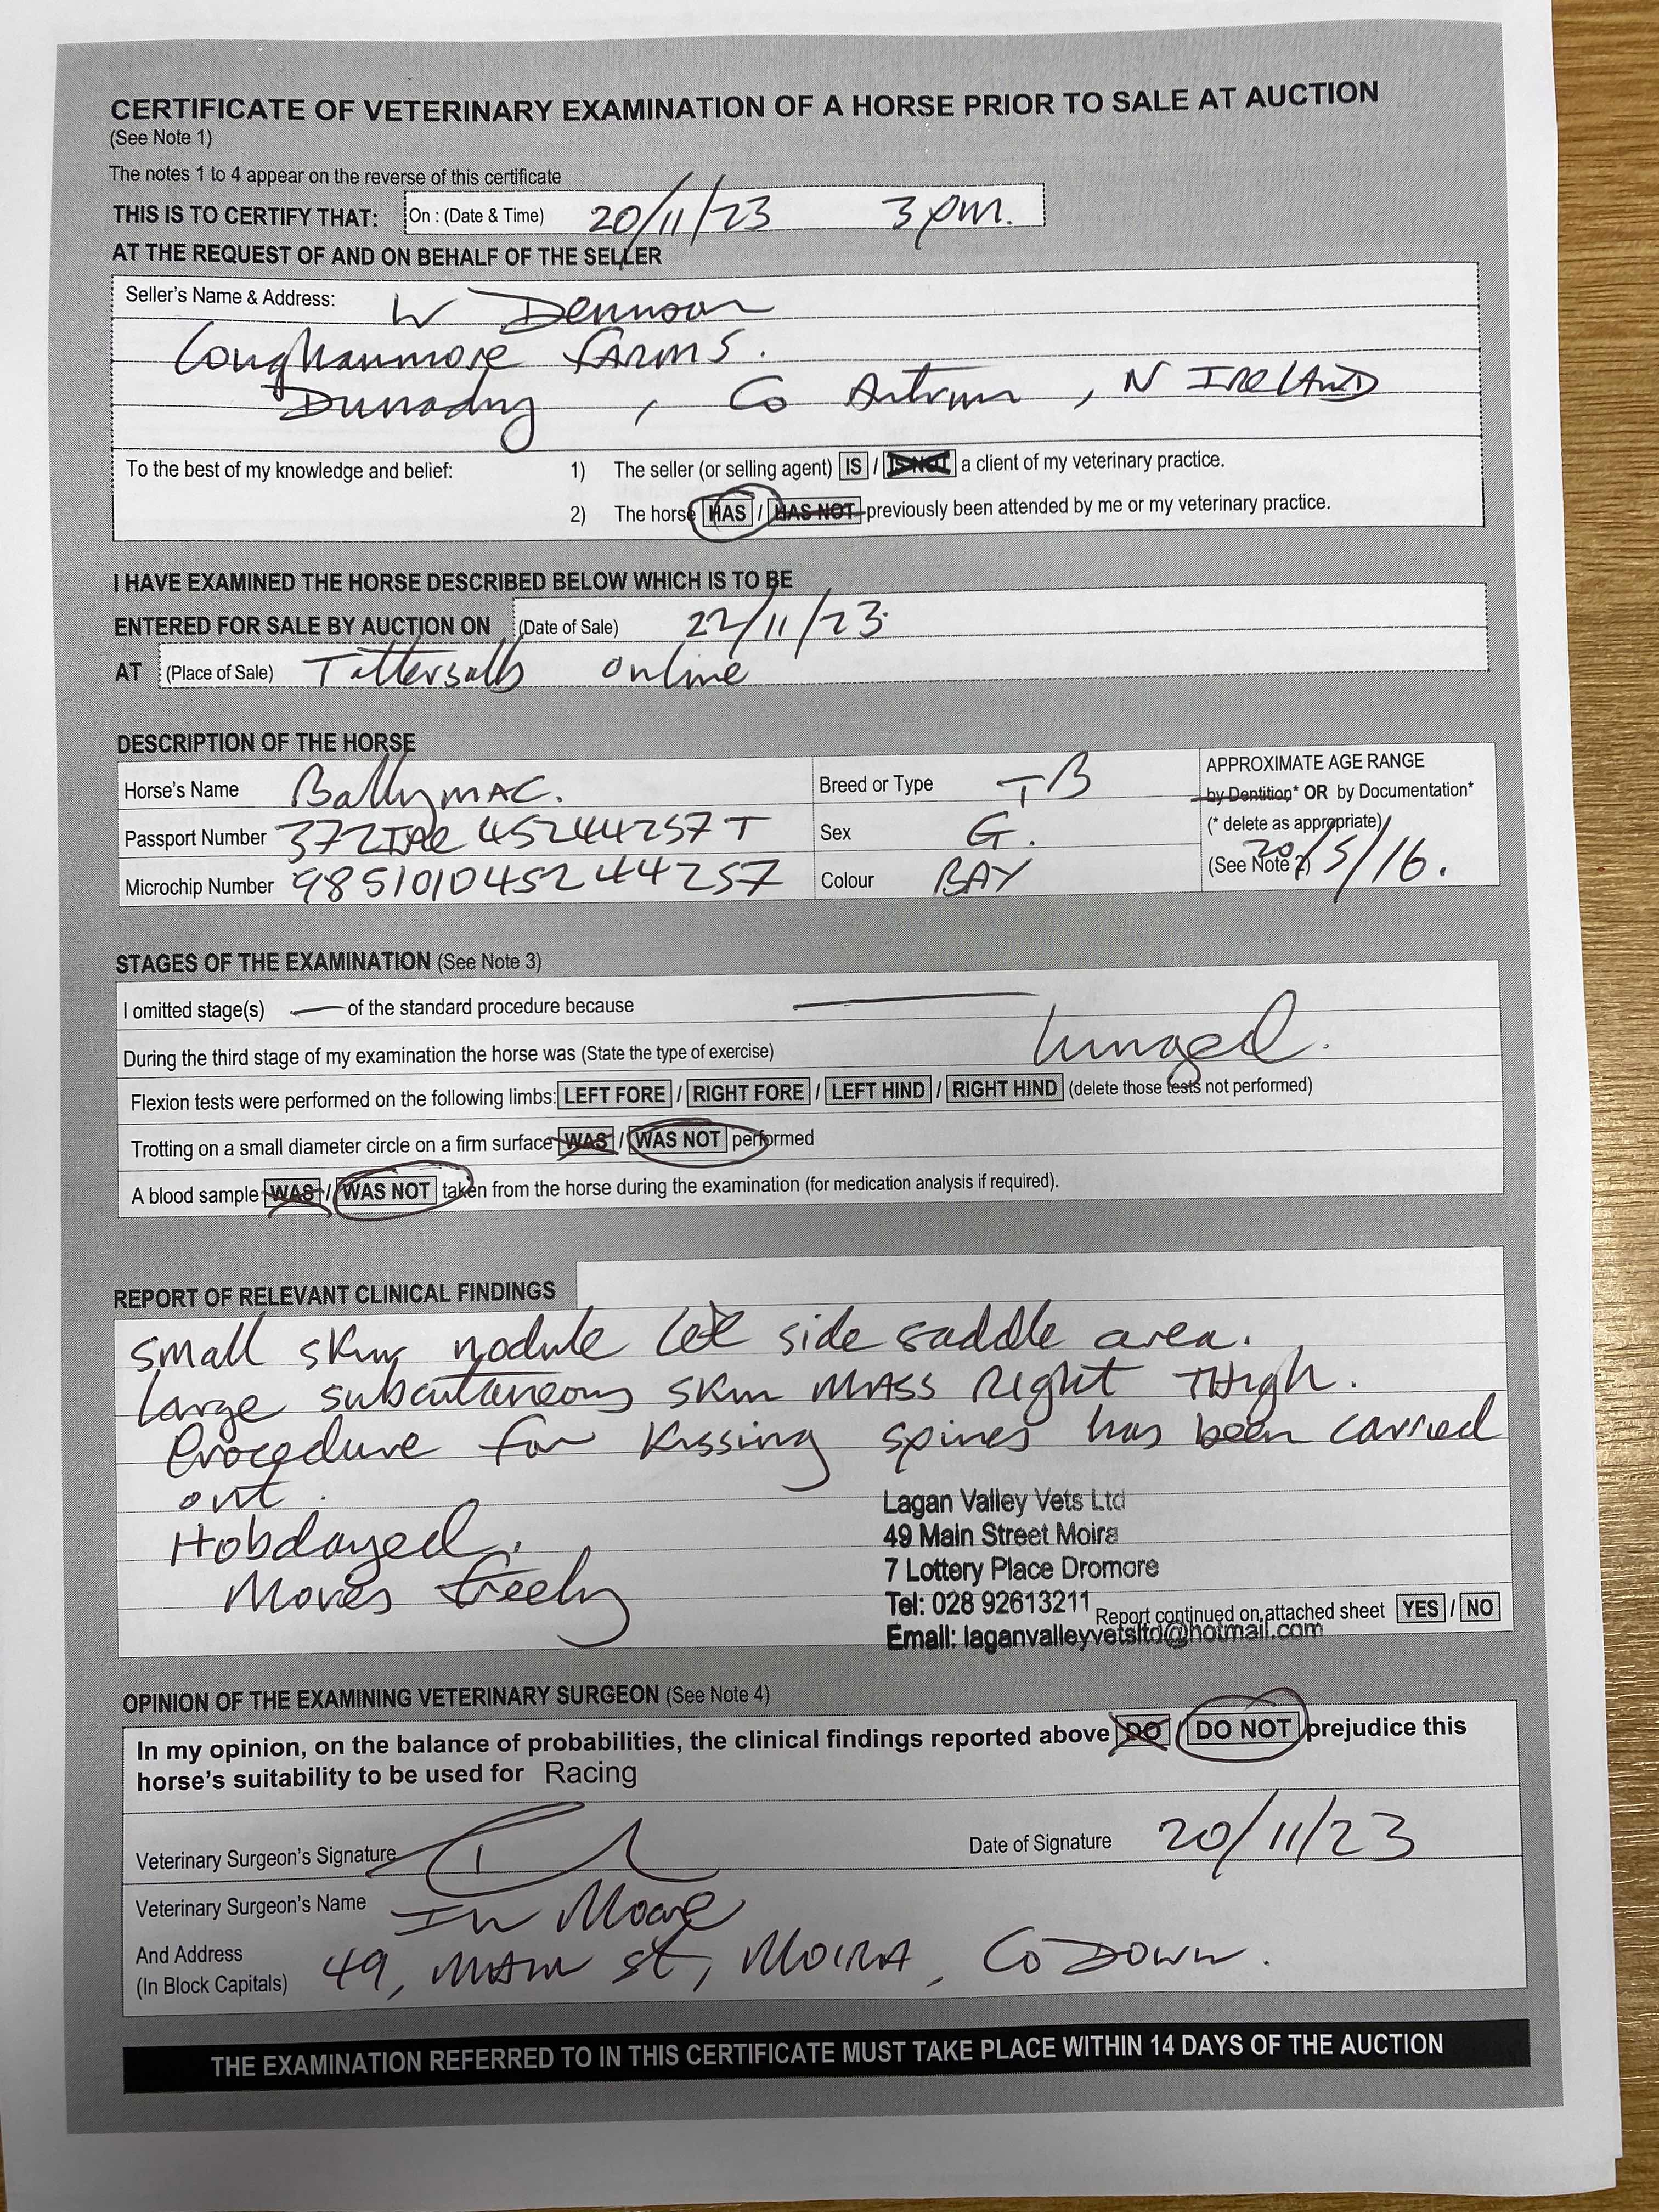 CERTIFICATE OF VETERINARY EXAMINATION OF A HORSE PRIOR TO SALE AT AUCTION
(See Note 1)
The notes 1 to 4 appear on the reverse of this certificate
THIS IS TO CERTIFY THAT: On : (Date & Time) 20/11/23 3pm.
AT THE REQUEST OF AND ON BEHALF OF THE SELLER
Seller's Name & Address: W
Loughanmore Farms.
Dunadry, Co Antrim, N IRELAND
To the best of my knowledge and belief: 1) The seller (or selling agent) IS / IS NOT a client of my veterinary practice.
2) The horse HAS / HAS NOT previously been attended by me or my veterinary practice.
I HAVE EXAMINED THE HORSE DESCRIBED BELOW WHICH IS TO BE
ENTERED FOR SALE BY AUCTION ON (Date of Sale) 22/11/23.
AT (Place of Sale) Tattersalls online
DESCRIPTION OF THE HORSE
Horse's Name BallymAC. Breed or Type TB APPROXIMATE AGE RANGE
by Dentition* OR by Documentation*
Passport Number 372IRE 45244257 T Sex G. (* delete as appropriate)
Microchip Number 985101045244257 Colour BAY (See Note 2) 20/5/16.
STAGES OF THE EXAMINATION (See Note 3)
I omitted stage(s) — of the standard procedure because —
During the third stage of my examination the horse was (State the type of exercise) lunged.
Flexion tests were performed on the following limbs: LEFT FORE / RIGHT FORE / LEFT HIND / RIGHT HIND (delete those tests not performed)
Trotting on a small diameter circle on a firm surface WAS / WAS NOT performed
A blood sample WAS / WAS NOT taken from the horse during the examination (for medication analysis if required).
REPORT OF RELEVANT CLINICAL FINDINGS
small skin nodule left side saddle area.
large subcutaneous skin MASS Right THigh.
Procedure for Kissing spines has been carried
out.
Hobdayed.
Moves freely
Lagan Valley Vets Ltd
49 Main Street Moira
7 Lottery Place Dromore
Tel: 028 92613211
Report continued on attached sheet YES / NO
Email: laganvalleyvetsltd@hotmail.com
OPINION OF THE EXAMINING VETERINARY SURGEON (See Note 4)
In my opinion, on the balance of probabilities, the clinical findings reported above DO / DO NOT prejudice this
horse's suitability to be used for Racing
Veterinary Surgeon's Signature Date of Signature 20/11/23
Veterinary Surgeon's Name IW Moore
And Address
(In Block Capitals) 49, MAIN St, MOIRA, Co DOWN.
THE EXAMINATION REFERRED TO IN THIS CERTIFICATE MUST TAKE PLACE WITHIN 14 DAYS OF THE AUCTION